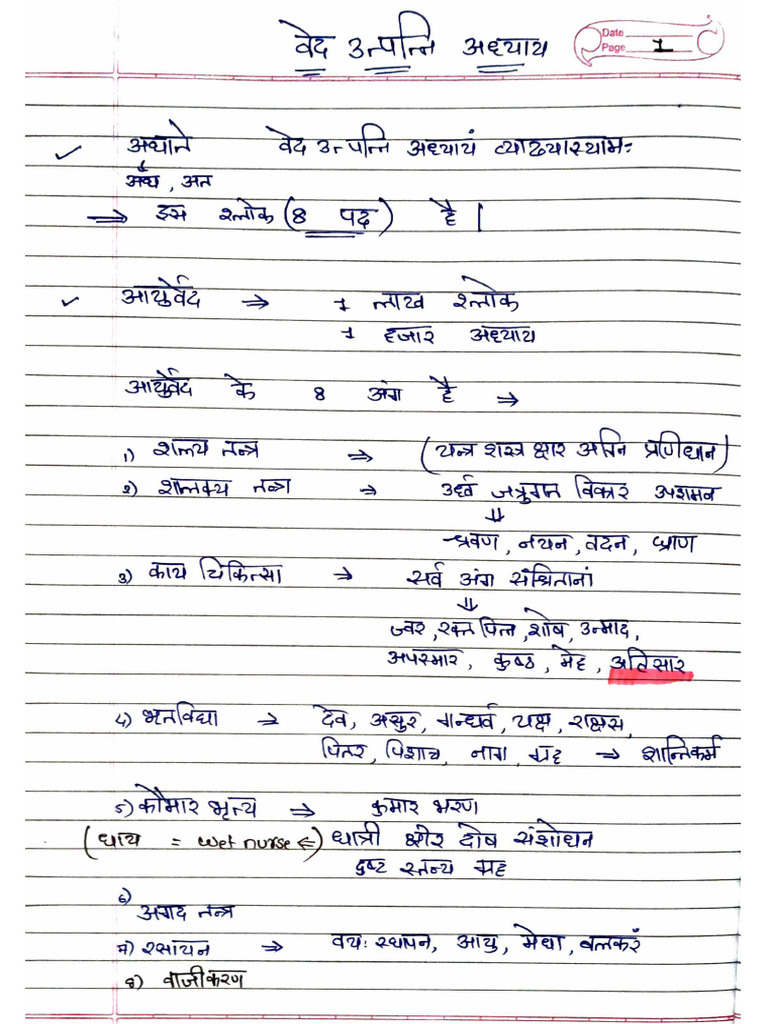 वेद उत्पत्ति अध्याय
Date
Page 1
अथातो वेद उत्पत्ति अध्यायं व्याख्यास्यामः
अथ , अत
⇒ इस श्लोक (8 पद) है |
आयुर्वेद ⇒ 1 लाख श्लोक
1 हजार अध्याय
आयुर्वेद के 8 अंग है ⇒
1) शल्य तन्त्र ⇒ (यन्त्र शस्त्र क्षार अग्नि प्रणिधान)
2) शालाक्य तन्त्र → उर्ध्व जत्रुगत विकार उपशमन
⇓
श्रवण , नयन , वदन , घ्राण
3) काय चिकित्सा → सर्व अंग संश्रितानां
⇓
ज्वर , रक्तपित्त , शोष , उन्माद ,
अपस्मार , कुष्ठ , मेह , अतिसार
4) भूतविद्या → देव , असुर , गन्धर्व , यक्ष , राक्षस ,
पितर , पिशाच , नाग , ग्रह → शान्तिकर्म
5) कौमार भृत्य ⇒ कुमार भरण
(धाय = wet nurse ⇐) धात्री क्षीर दोष संशोधन
दुष्ट स्तन्य ग्रह
6)
अगद तन्त्र
7) रसायन ⇒ वयः स्थापन , आयु , मेधा , बलकरं
8) वाजीकरण